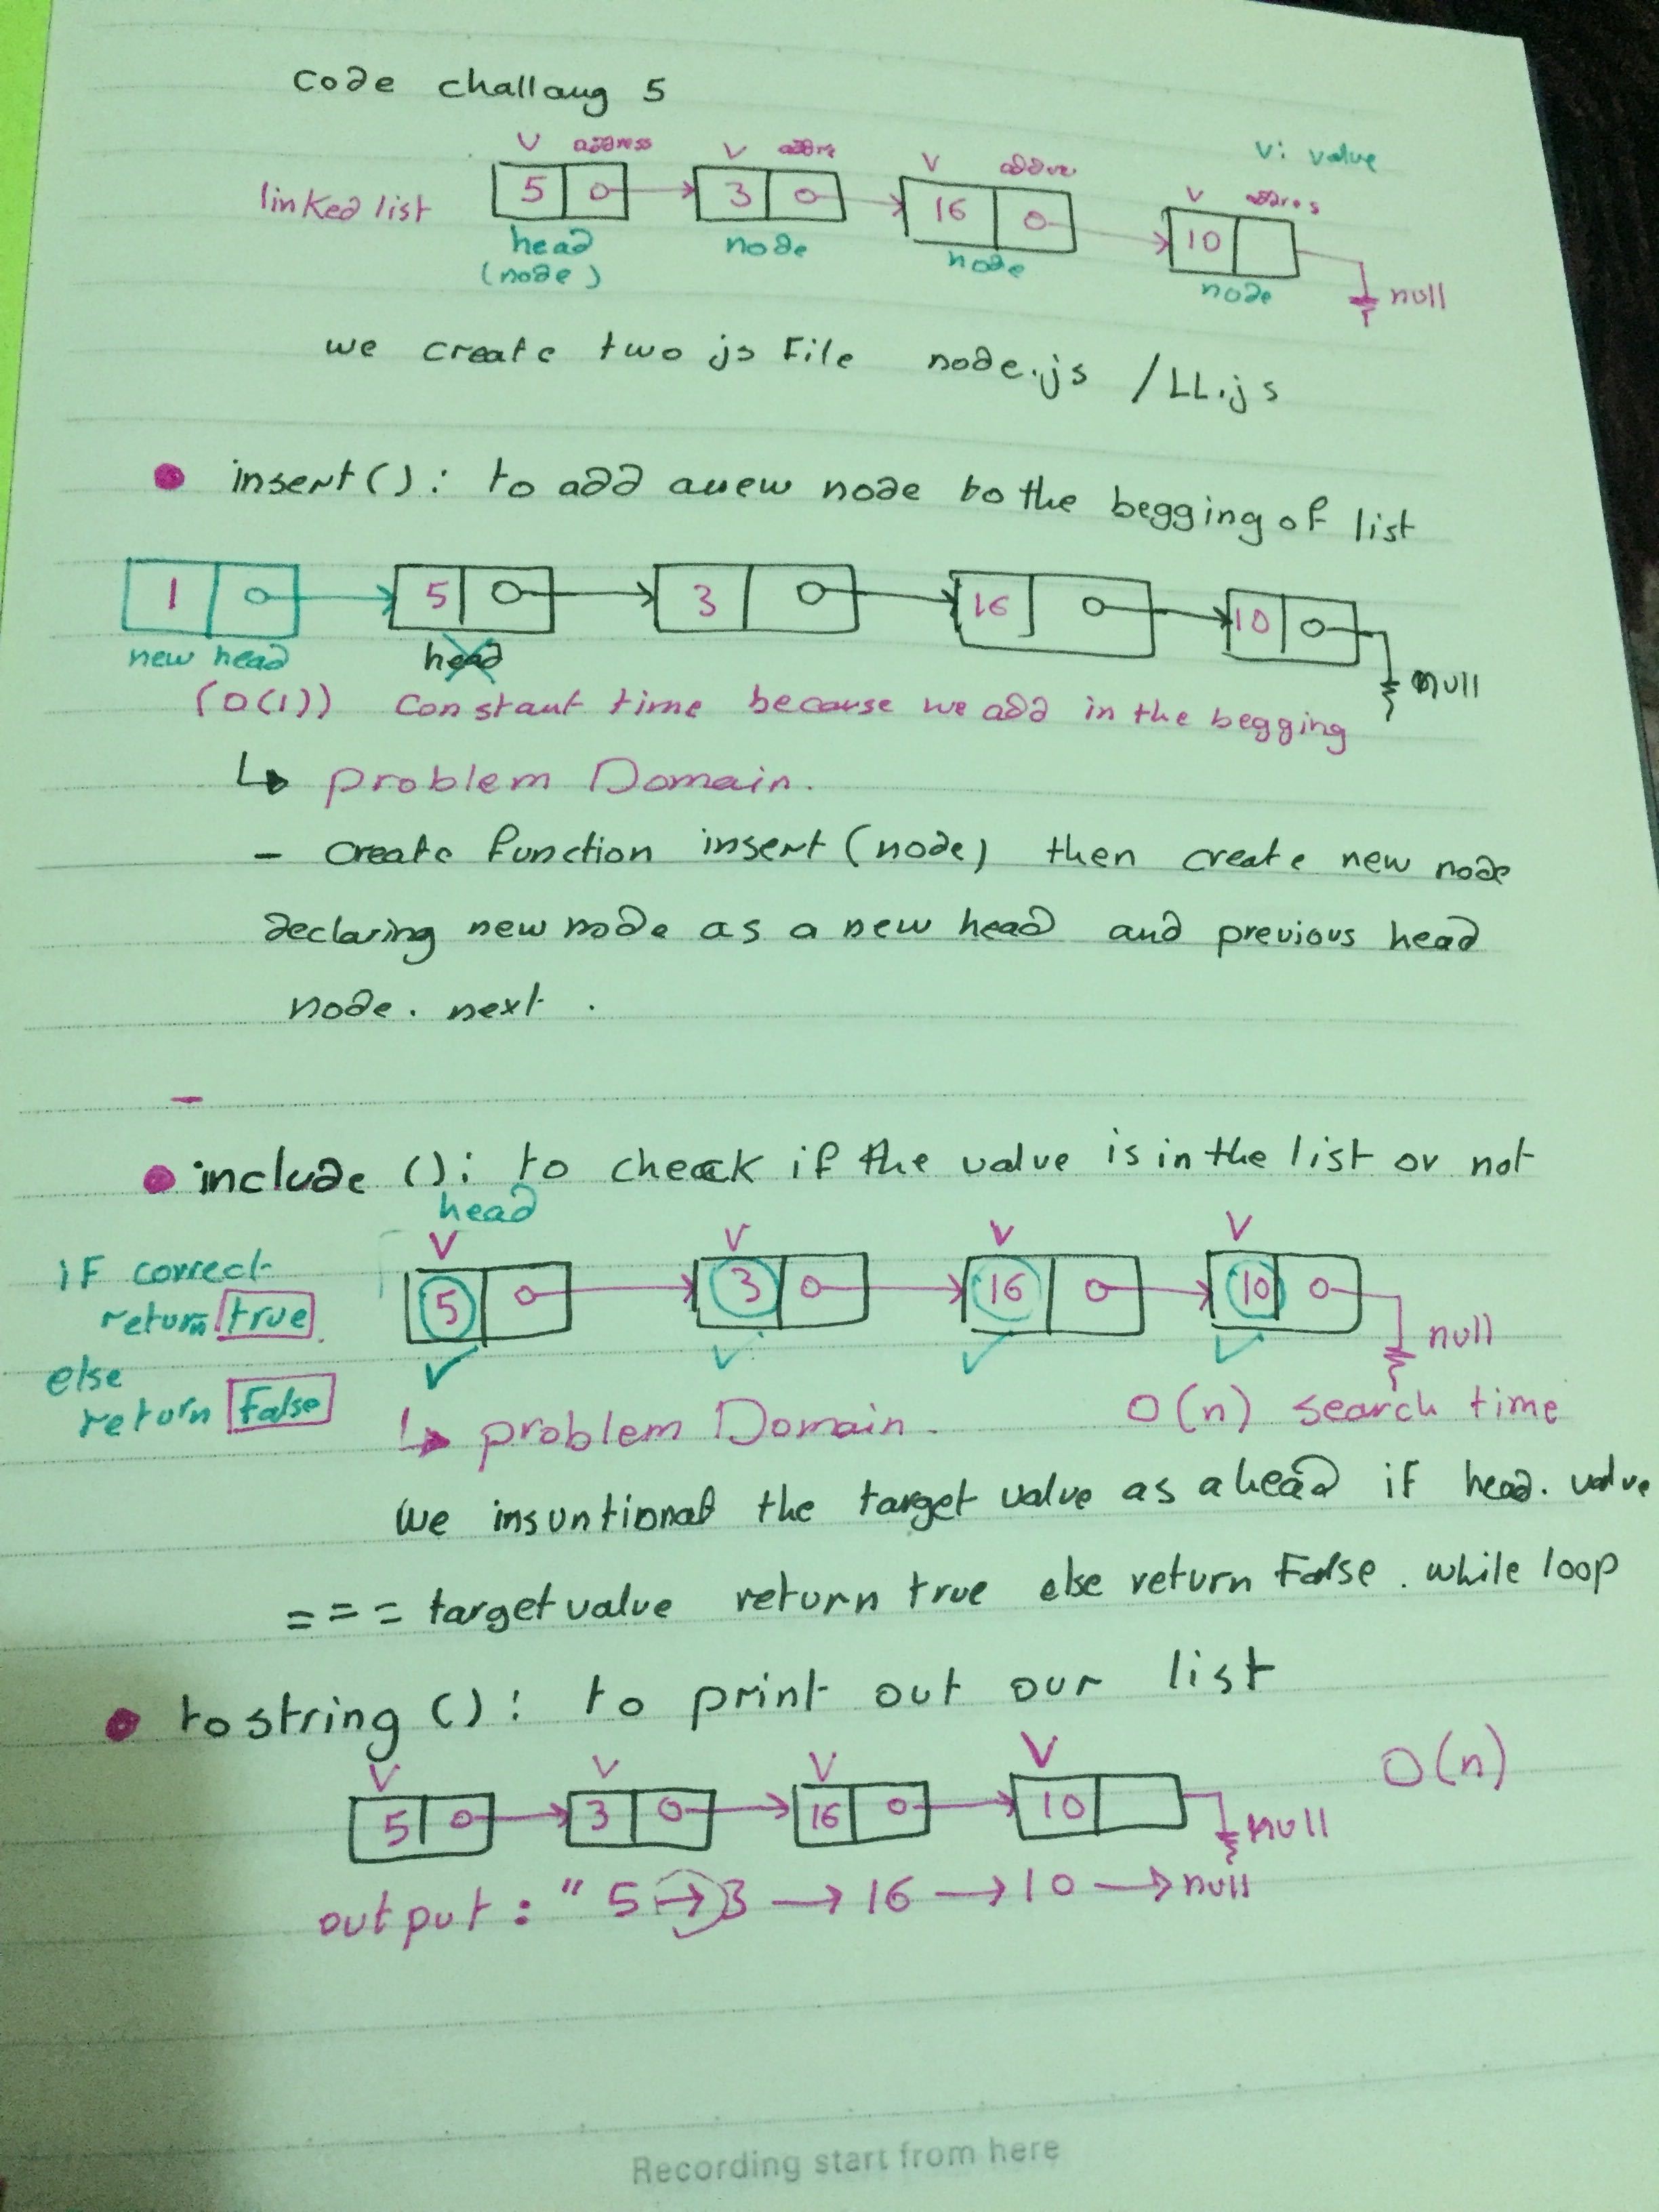 code challaug 5
V address V addre V addre V addres V: value
linked list 5 3 16 10
head node node node null
(node)
we create two js File node.js / LL.js
insert(): to add a new node to the begging of list
1 5 3 16 10
new head head null
(O(1)) Constant time because we add in the begging
problem Domain.
- create function insert (node) then create new node
declaring new node as a new head and previous head
node. next .
-
include (): to check if the value is in the list or not
head
V V V V
if correct
return true
5 3 16 10 null
else
return False
problem Domain. O(n) search time
we the target value as a head if head. value
=== target value return true else return False . while loop
tostring (): to print out our list
V V V V O(n)
5 3 16 10 null
output : " 5 → 3 → 16 → 10 → null
Recording start from here